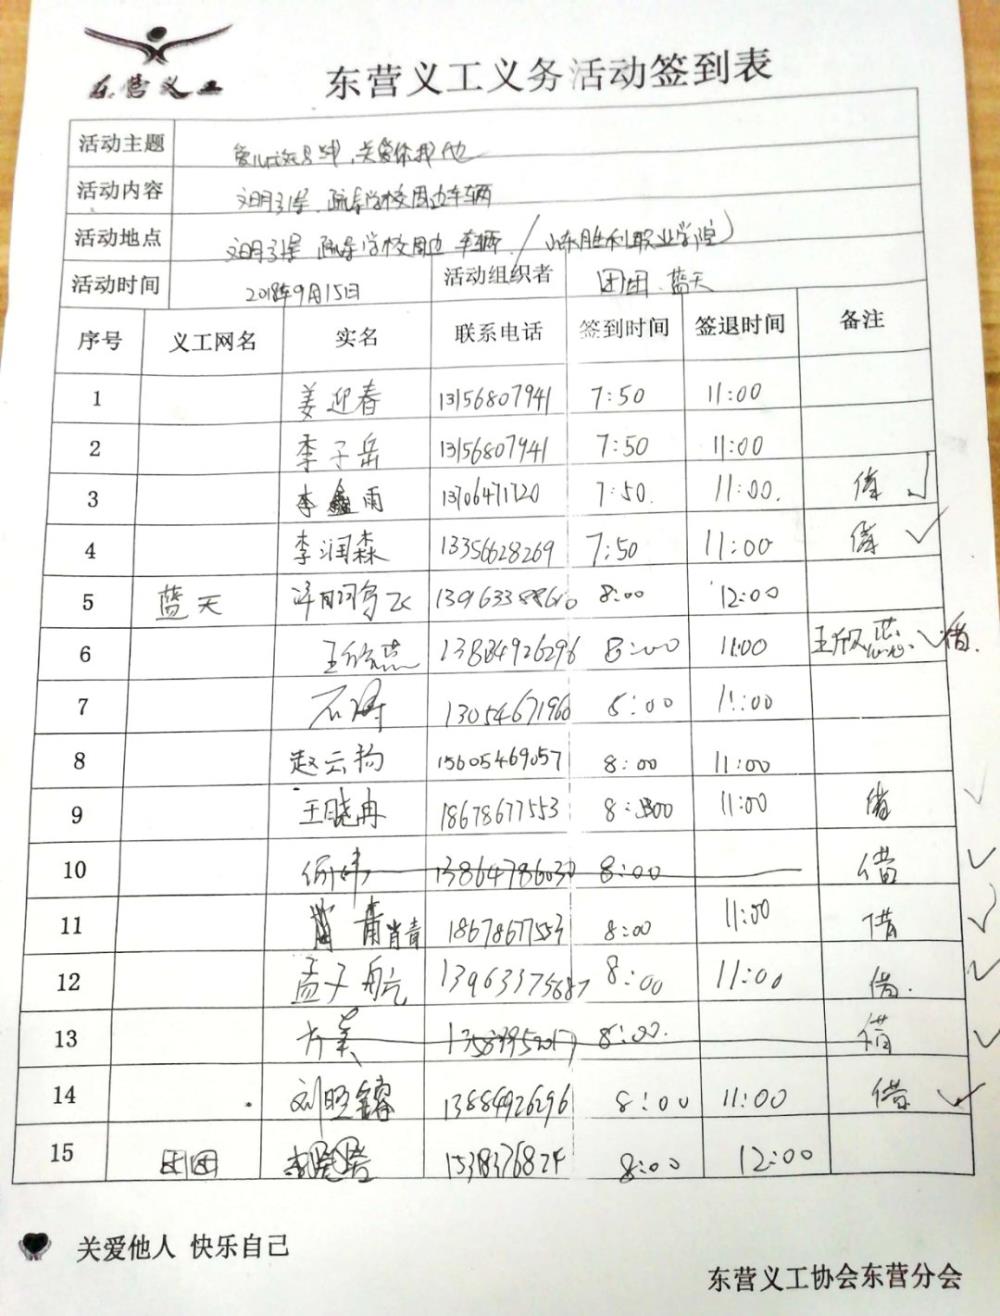 东营义工
东营义工义务活动签到表
活动主题 关爱你我他
活动内容 文明引导、疏导学校周边车辆
活动地点 文明引导 疏导学校周边车辆（山东胜利职业学院）
活动时间 2018年9月15日 活动组织者 团团、蓝天
序号 义工网名 实名 联系电话 签到时间 签退时间 备注
1 姜迎春 13156807941 7:50 11:00
2 李子岳 13156807941 7:50 11:00
3 李鑫雨 13706471720 7:50. 11:00. 借 ✓
4 李润森 13356628269 7:50 11:00 借 ✓
5 蓝天 8:00 12:00
6 王欣蕊 13884926296 8:00 11:00 王欣蕊 ✓ 借.
7 石涛 13054671960 8:00 11:00
8 赵云扬 15605469057 8:00 11:00
9 王晓冉 18678677553 8:00 11:00 借 ✓
10 13864786030 8:00 借 ✓
11 肖青 18678677553 8:00 11:00 借 ✓
12 孟子航 13963375687 8:00 11:00 借. ✓
13 8:00. 借 ✓
14 刘 13884926296 8:00 11:00 借 ✓
15 团团 8:00 12:00
关爱他人 快乐自己
东营义工协会东营分会